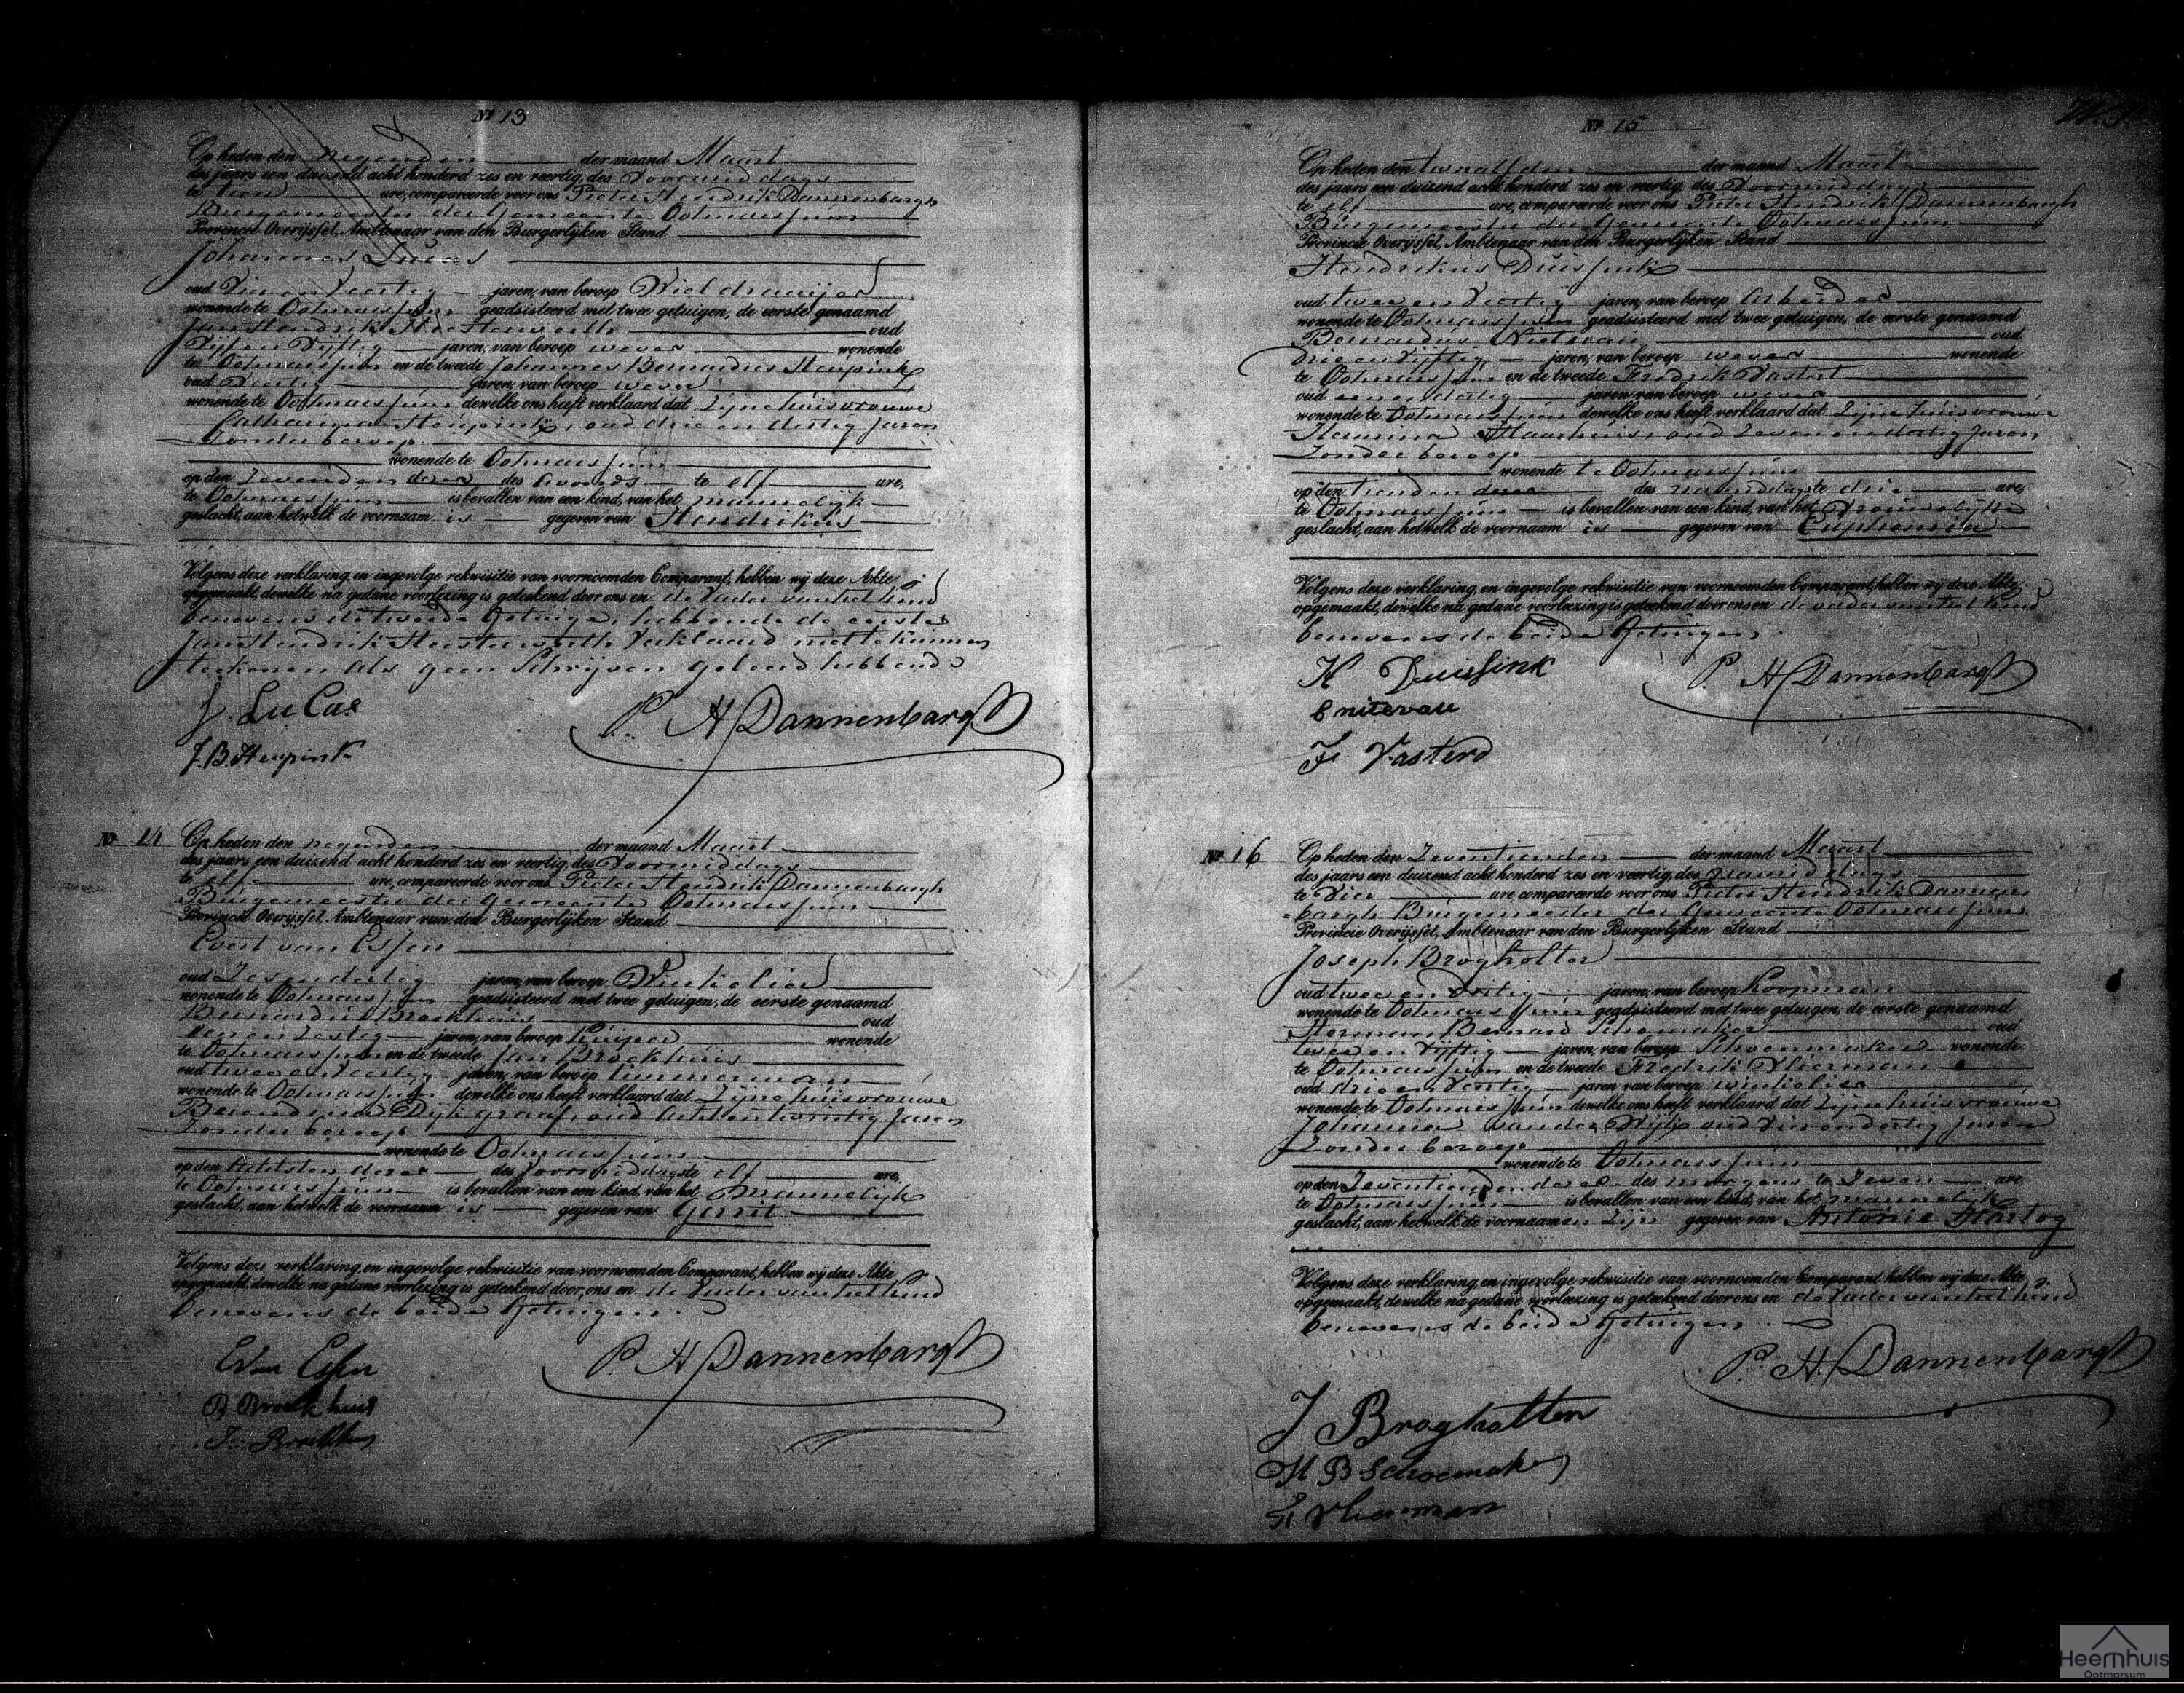 Nº 13
Op heden den negenden der maand Maart
des jaars een duizend acht honderd zes en veertig, des Voormiddags
te tien ure, compareerde voor ons Pieter Hendrik Dannenbargh
Burgemeester der Gemeente Ootmarssum
Provincie Overijssel, Ambtenaar van den Burgerlijken Stand
Johannes Lucas
oud Vier en Veertig jaren, van beroep Wieldraaijer
wonende te Ootmarssum geadsisteerd met twee getuigen, de eerste genaamd
Jan Hendrik oud
Vijf en Vijftig jaren, van beroep wever wonende
te Ootmarssum en de tweede Johannes Bernardus Heupink
oud Veertig jaren, van beroep wever
wonende te Ootmarssum dewelke ons heeft verklaard dat Zijne huisvrouwe
Catharina Heupink, oud drie en dertig Jaren
Zonder beroep
wonende te Ootmarssum
op den Zevenden dezer des avonds te elf ure,
te Ootmarssum is bevallen van een kind, van het mannelijk
geslacht, aan hetwelk de voornaam is gegeven van Hendrikus
Volgens deze verklaring, en ingevolge rekwisitie van voornoemden Comparant, hebben wij deze Akte
opgemaakt, dewelke na gedane voorlezing is geteekend door ons en de Vader van het kind
benevens de tweede Getuige, hebbende de eerste
Jan Hendrik Verklaard niet te kunnen
teekenen als geen Schrijven geleerd hebbende
J. LuCas
P. H Dannenbargh
J. B. Heupink
Nº 14
Op heden den negenden der maand Maart
des jaars een duizend acht honderd zes en veertig, des Voormiddags
te elf ure, compareerde voor ons Pieter Hendrik Dannenbargh
Burgemeester der Gemeente Ootmarssum
Provincie Overijssel, Ambtenaar van den Burgerlijken Stand
Evert van Essen
oud Zes en dertig jaren, van beroep Winkelier
wonende te Ootmarssum geadsisteerd met twee getuigen, de eerste genaamd
Bernardus Broekhuis oud
een en Zestig jaren, van beroep Kuiper wonende
te Ootmarssum en de tweede Jan Broekhuis
oud twee en Veertig jaren, van beroep timmerman
wonende te Ootmarssum dewelke ons heeft verklaard dat Zijne huisvrouwe
Berendina Dijkgraaf, oud acht en twintig Jaren
Zonder beroep
wonende te Ootmarssum
op den Achtsten dezer des Voormiddags te elf ure,
te Ootmarssum is bevallen van een kind, van het mannelijk
geslacht, aan hetwelk de voornaam is gegeven van Gerrit
Volgens deze verklaring, en ingevolge rekwisitie van voornoemden Comparant, hebben wij deze Akte
opgemaakt, dewelke na gedane voorlezing is geteekend door ons en de Vader van het kind
benevens de beide Getuigen.
E van Essen
P. H Dannenbargh
B Broekhuis
Nº 15
Op heden den twaalfden der maand Maart
des jaars een duizend acht honderd zes en veertig, des Voormiddags
te elf ure, compareerde voor ons Pieter Hendrik Dannenbargh
Burgemeester der Gemeente Ootmarssum
Provincie Overijssel, Ambtenaar van den Burgerlijken Stand
Hendrikus Duissink
oud twee en Veertig jaren, van beroep Arbeider
wonende te Ootmarssum geadsisteerd met twee getuigen, de eerste genaamd
Bernardus Nietevau oud
drie en Vijftig jaren, van beroep wever wonende
te Ootmarssum en de tweede Fredrik Vastert
oud een en dertig jaren, van beroep wever
wonende te Ootmarssum dewelke ons heeft verklaard dat Zijne huisvrouwe
Hermina Haarhuis, oud Zeven en dertig Jaren
Zonder beroep
wonende te Ootmarssum
op den tienden dezer des namiddags te drie ure,
te Ootmarssum is bevallen van een kind, van het Vrouwelijke
geslacht, aan hetwelk de voornaam is gegeven van Euphemia
Volgens deze verklaring, en ingevolge rekwisitie van voornoemden Comparant, hebben wij deze Akte
opgemaakt, dewelke na gedane voorlezing is geteekend door ons en de vader van het kind
benevens de beide Getuigen.
H Duissink
P. H Dannenbargh
B nitevau
F. Vasterd
Nº 16
Op heden den Zeventienden der maand Maart
des jaars een duizend acht honderd zes en veertig, des namiddags
te Vier ure compareerde voor ons Pieter Hendrik Dannen
bargh Burgemeester der Gemeente Ootmarssum
Provincie Overijssel, Ambtenaar van den Burgerlijken Stand
Joseph Brogholter
oud twee en dertig jaren, van beroep Koopman
wonende te Ootmarssum geadsisteerd met twee getuigen, de eerste genaamd
Herman Bernard Schoemaker oud
twee en Vijftig jaren, van beroep Schoenmaker wonende
te Ootmarssum en de tweede Fredrik Vlierman
oud drie en Veertig jaren van beroep winkelier
wonende te Ootmarssum dewelke ons heeft verklaard dat Zijne huisvrouwe
Johanna van der Wijk oud Vier en dertig Jaren
Zonder beroep
wonende te Ootmarssum
op den Zeventienden dezer des morgens te Zeven ure,
te Ootmarssum is bevallen van een kind, van het mannelijk
geslacht, aan hetwelk de voornaamen Zijn gegeven van Antonie Hartog
Volgens deze verklaring, en ingevolge rekwisitie van voornoemden Comparant hebben wij deze Akte
opgemaakt, dewelke na gedane voorlezing is geteekend door ons en de Vader van het kind
benevens de beide Getuigen.
P. H. Dannenbargh
J Brogholter
H B Schoemaker
F Vlierman
Heemhuis
Ootmarsum